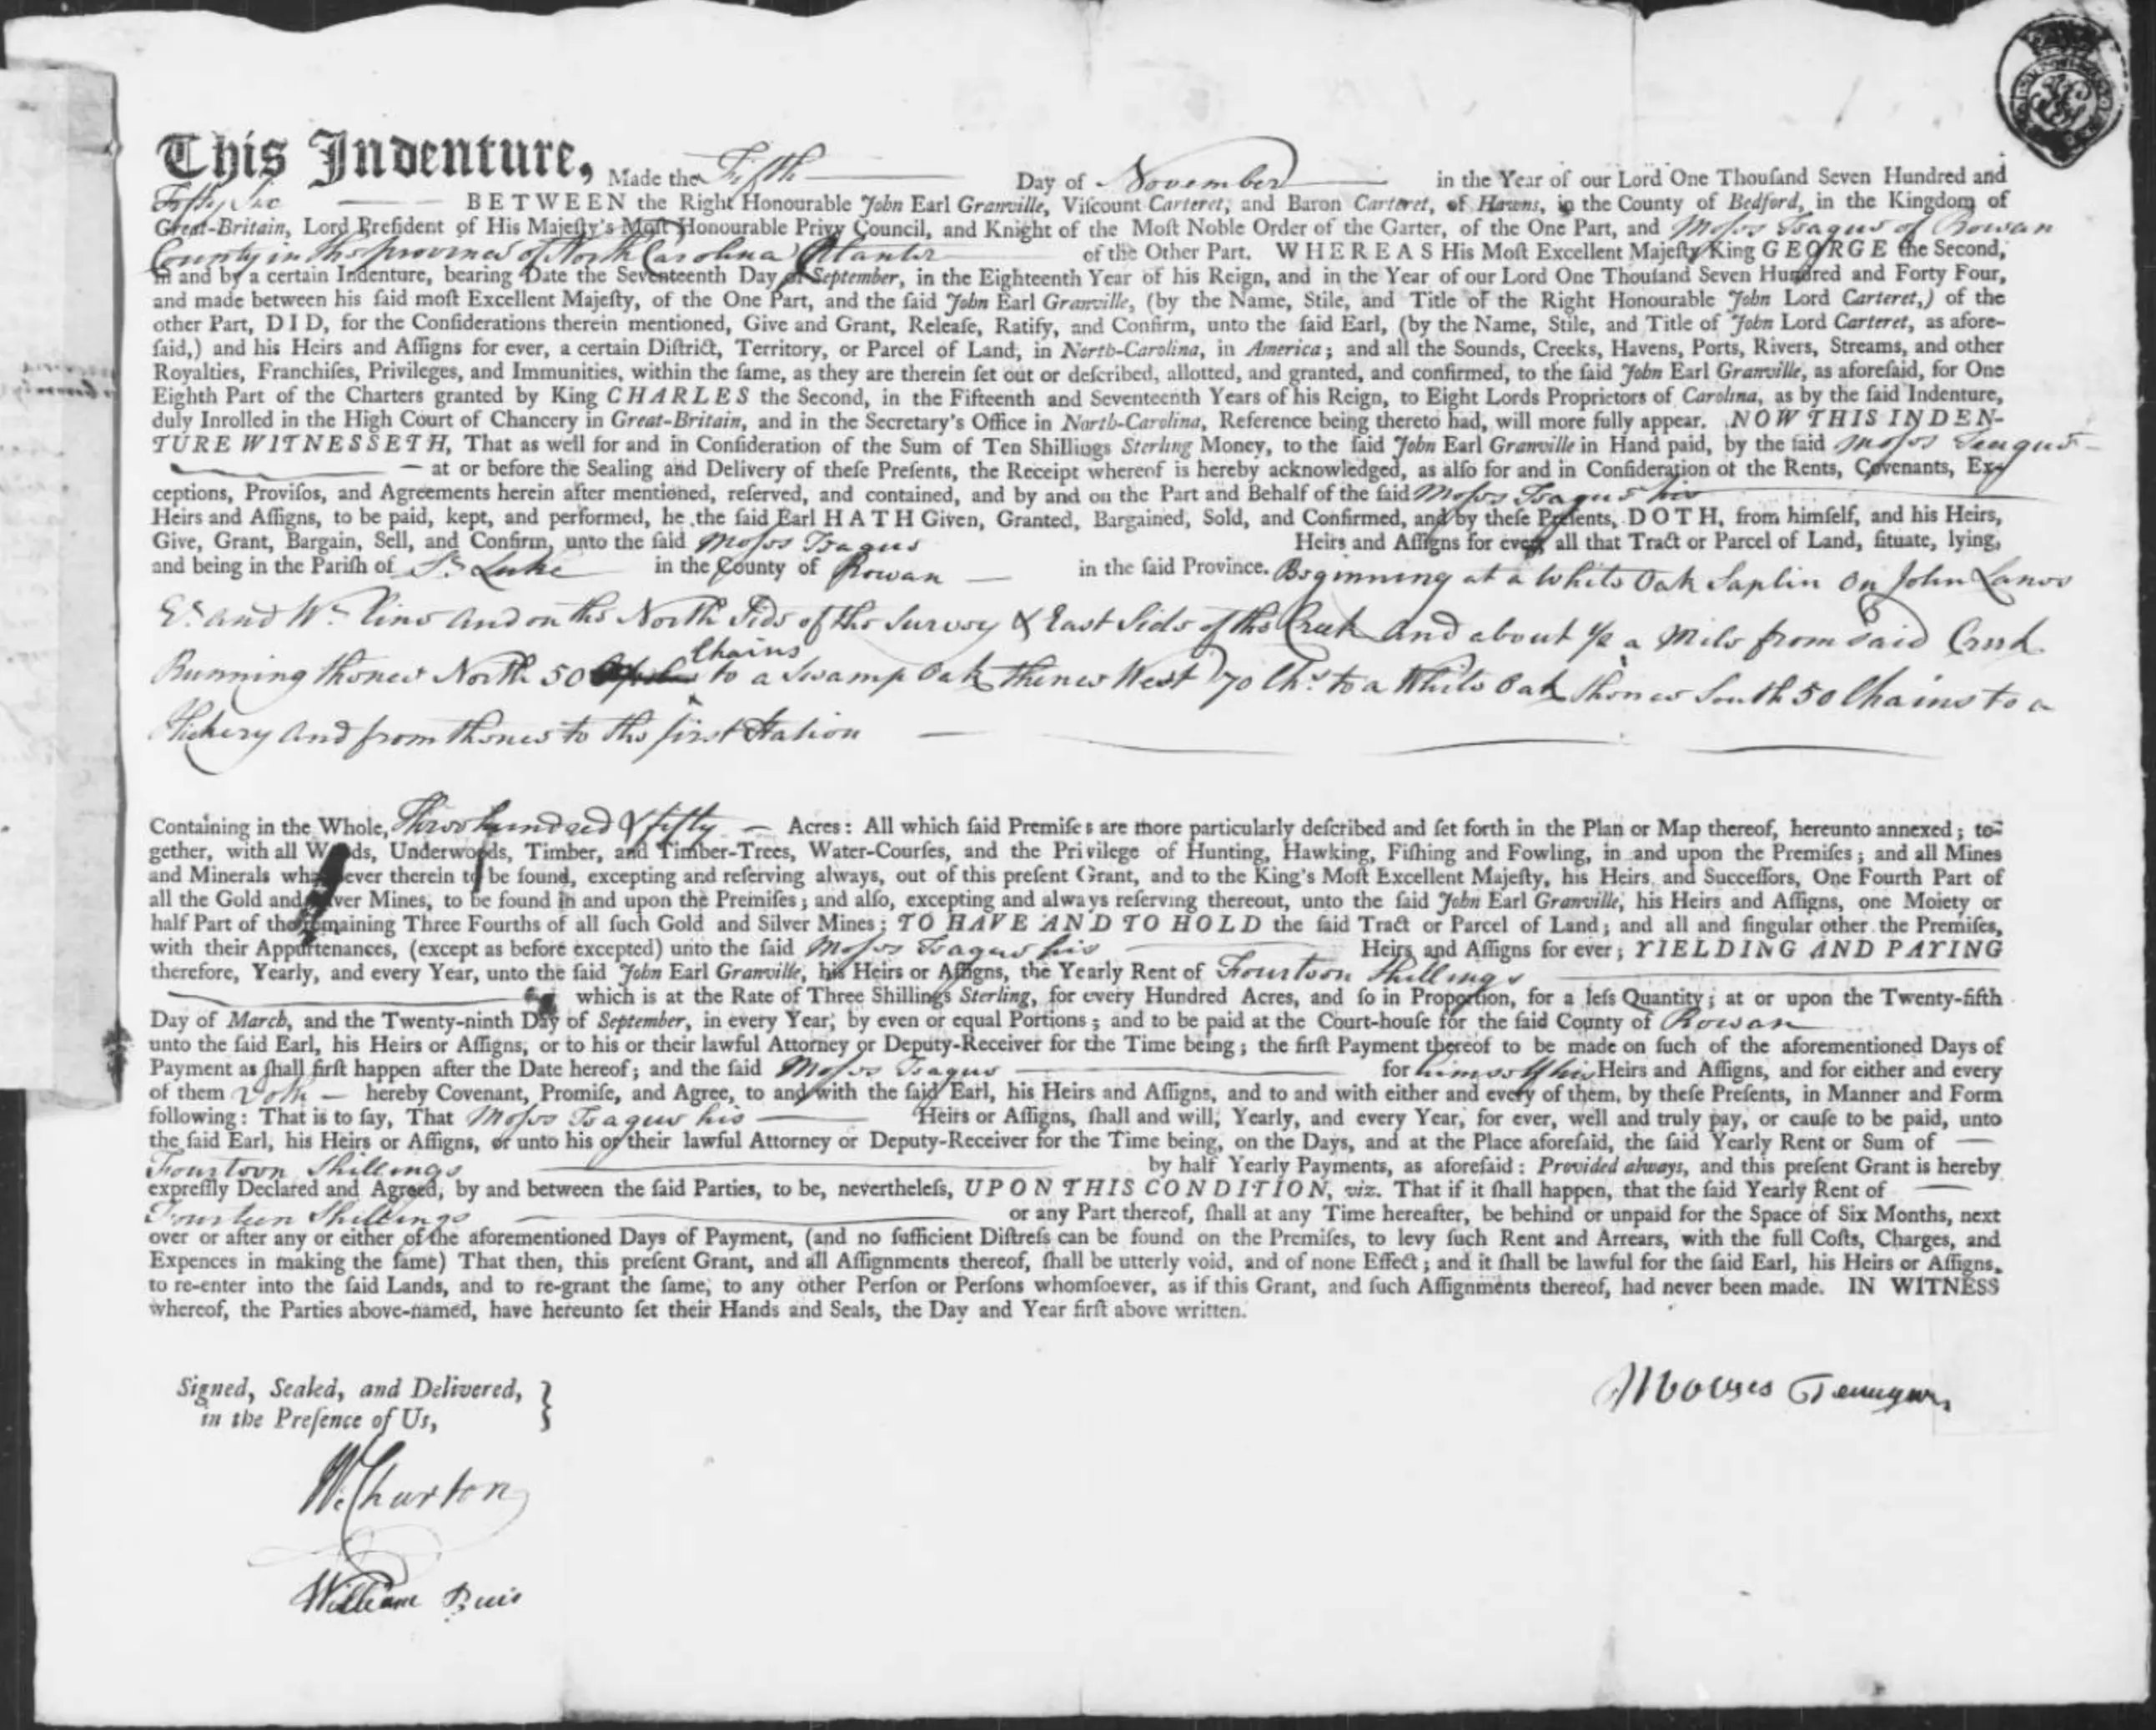 This Indenture, Made the Fifth Day of November in the Year of our Lord One Thouſand Seven Hundred and
Fifty Six BETWEEN the Right Honourable John Earl Granville, Viſcount Carteret, and Baron Carteret, of Hawns, in the County of Bedford, in the Kingdom of
Great-Britain, Lord Preſident of His Majeſty's Moſt Honourable Privy Council, and Knight of the Moſt Noble Order of the Garter, of the One Part, and Moses Teague of Rowan
County in the province of North Carolina Planter of the Other Part. WHEREAS His Moſt Excellent Majeſty King GEORGE the Second,
in and by a certain Indenture, bearing Date the Seventeenth Day of September, in the Eighteenth Year of his Reign, and in the Year of our Lord One Thouſand Seven Hundred and Forty Four,
and made between his ſaid moſt Excellent Majeſty, of the One Part, and the ſaid John Earl Granville, (by the Name, Stile, and Title of the Right Honourable John Lord Carteret,) of the
other Part, DID, for the Conſiderations therein mentioned, Give and Grant, Releaſe, Ratify, and Confirm, unto the ſaid Earl, (by the Name, Stile, and Title of John Lord Carteret, as afore-
ſaid,) and his Heirs and Aſſigns for ever, a certain Diſtrict, Territory, or Parcel of Land, in North-Carolina, in America; and all the Sounds, Creeks, Havens, Ports, Rivers, Streams, and other
Royalties, Franchiſes, Privileges, and Immunities, within the ſame, as they are therein ſet out or deſcribed, allotted, and granted, and confirmed, to the ſaid John Earl Granville, as aforeſaid, for One
Eighth Part of the Charters granted by King CHARLES the Second, in the Fifteenth and Seventeenth Years of his Reign, to Eight Lords Proprietors of Carolina, as by the ſaid Indenture,
duly Inrolled in the High Court of Chancery in Great-Britain, and in the Secretary's Office in North-Carolina, Reference being thereto had, will more fully appear. NOW THIS INDEN-
TURE WITNESSETH, That as well for and in Conſideration of the Sum of Ten Shillings Sterling Money, to the ſaid John Earl Granville in Hand paid, by the ſaid Moses Teague
at or before the Sealing and Delivery of theſe Preſents, the Receipt whereof is hereby acknowledged, as alſo for and in Conſideration of the Rents, Covenants, Ex-
ceptions, Proviſos, and Agreements herein after mentioned, reſerved, and contained, and by and on the Part and Behalf of the ſaid Moses Teague his
Heirs and Aſſigns, to be paid, kept, and performed, he the ſaid Earl HATH Given, Granted, Bargained, Sold, and Confirmed, and by theſe Preſents, DOTH, from himſelf, and his Heirs,
Give, Grant, Bargain, Sell, and Confirm, unto the ſaid Moses Teague Heirs and Aſſigns for ever, all that Tract or Parcel of Land, ſituate, lying,
and being in the Pariſh of St. Luke in the County of Rowan in the ſaid Province. Beginning at a White Oak Saplin on John Lanes
Et. and Wt. line and on the North Side of the Survey & East Side of the Creek and about 1/2 a Mile from said Creek
Running thence North 50 Chains to a Swamp Oak thence West 70 Chs. to a White Oak thence South 50 Chains to a
Hickery and from thence to the first Station
Containing in the Whole, Three hundred & fifty Acres: All which ſaid Premiſes are more particularly deſcribed and ſet forth in the Plan or Map thereof, hereunto annexed; to-
gether, with all Woods, Underwoods, Timber, and Timber-Trees, Water-Courſes, and the Privilege of Hunting, Hawking, Fiſhing and Fowling, in and upon the Premiſes; and all Mines
and Minerals whatſoever therein to be found, excepting and reſerving always, out of this preſent Grant, and to the King's Moſt Excellent Majeſty, his Heirs and Succeſſors, One Fourth Part of
all the Gold and Silver Mines, to be found in and upon the Premiſes; and alſo, excepting and always reſerving thereout, unto the ſaid John Earl Granville, his Heirs and Aſſigns, one Moiety or
half Part of the remaining Three Fourths of all ſuch Gold and Silver Mines; TO HAVE AND TO HOLD the ſaid Tract or Parcel of Land; and all and ſingular other the Premiſes,
with their Appurtenances, (except as before excepted) unto the ſaid Moses Teague his Heirs and Aſſigns for ever; YIELDING AND PAYING
therefore, Yearly, and every Year, unto the ſaid John Earl Granville, his Heirs or Aſſigns, the Yearly Rent of Fourteen Shillings
which is at the Rate of Three Shillings Sterling, for every Hundred Acres, and ſo in Proportion, for a leſs Quantity; at or upon the Twenty-fifth
Day of March, and the Twenty-ninth Day of September, in every Year, by even or equal Portions; and to be paid at the Court-houſe for the ſaid County of Rowan
unto the ſaid Earl, his Heirs or Aſſigns, or to his or their lawful Attorney or Deputy-Receiver for the Time being; the firſt Payment thereof to be made on ſuch of the aforementioned Days of
Payment as ſhall firſt happen after the Date hereof; and the ſaid Moses Teague for himself his Heirs and Aſſigns, and for either and every
of them Doth hereby Covenant, Promiſe, and Agree, to and with the ſaid Earl, his Heirs and Aſſigns, and to and with either and every of them, by theſe Preſents, in Manner and Form
following: That is to ſay, That Moses Teague his Heirs or Aſſigns, ſhall and will, Yearly, and every Year, for ever, well and truly pay, or cauſe to be paid, unto
the ſaid Earl, his Heirs or Aſſigns, or unto his or their lawful Attorney or Deputy-Receiver for the Time being, on the Days, and at the Place aforeſaid, the ſaid Yearly Rent or Sum of
Fourteen Shillings by half Yearly Payments, as aforeſaid: Provided always, and this preſent Grant is hereby
expreſſly Declared and Agreed, by and between the ſaid Parties, to be, nevertheleſs, UPON THIS CONDITION, viz. That if it ſhall happen, that the ſaid Yearly Rent of
Fourteen Shillings or any Part thereof, ſhall at any Time hereafter, be behind or unpaid for the Space of Six Months, next
over or after any or either of the aforementioned Days of Payment, (and no ſufficient Diſtreſs can be found on the Premiſes, to levy ſuch Rent and Arrears, with the full Coſts, Charges, and
Expences in making the ſame) That then, this preſent Grant, and all Aſſignments thereof, ſhall be utterly void, and of none Effect; and it ſhall be lawful for the ſaid Earl, his Heirs or Aſſigns,
to re-enter into the ſaid Lands, and to re-grant the ſame, to any other Perſon or Perſons whomſoever, as if this Grant, and ſuch Aſſignments thereof, had never been made. IN WITNESS
whereof, the Parties above-named, have hereunto ſet their Hands and Seals, the Day and Year firſt above written.
Signed, Sealed, and Delivered,
in the Preſence of Us,
Mooses Teauger
W. Churton
William Buis